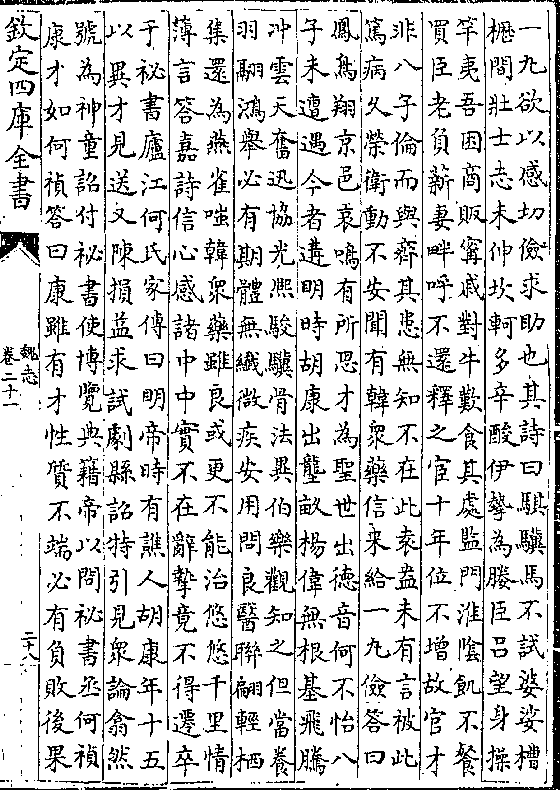 一丸欲以感切儉求助也其詩曰騏驥馬不試婆娑槽
櫪間壯士志未伸坎軻多辛酸伊摯為媵臣呂望身操
竿夷吾困商販甯戚對牛歎食其處監門淮陰飢不餐
買臣老負薪妻畔呼不還釋之宦十年位不增故官才
非八子倫而與齊其患無知不在此袁盎未有言被此
篤病久榮衛動不安聞有韓衆藥信來給一丸儉答曰
鳳鳥翔京邑哀鳴有所思才為聖世出德音何不怡八
子未遭遇今者遘明時胡康出壟畝楊偉無根基飛騰
沖雲天奮迅協光熙駿驥骨法異伯樂觀知之但當養
羽翮鴻舉必有期體無纖微疾安用問良醫聯翩輕栖
集還為燕雀嗤韓衆藥雖良或更不能治悠悠千里情
薄言答嘉詩信心感諸中中實不在辭摯竟不得遷卒
于秘書廬江何氏家傳曰明帝時有譙人胡康年十五
以異才見送又陳損益求試劇縣詔特引見衆論翕然
號為神童詔付秘書使博覽典籍帝以問秘書丞何禎
康才如何禎答曰康雖有才性質不端必有負敗後果
欽定四庫全書
魏志
卷二十一
二十八